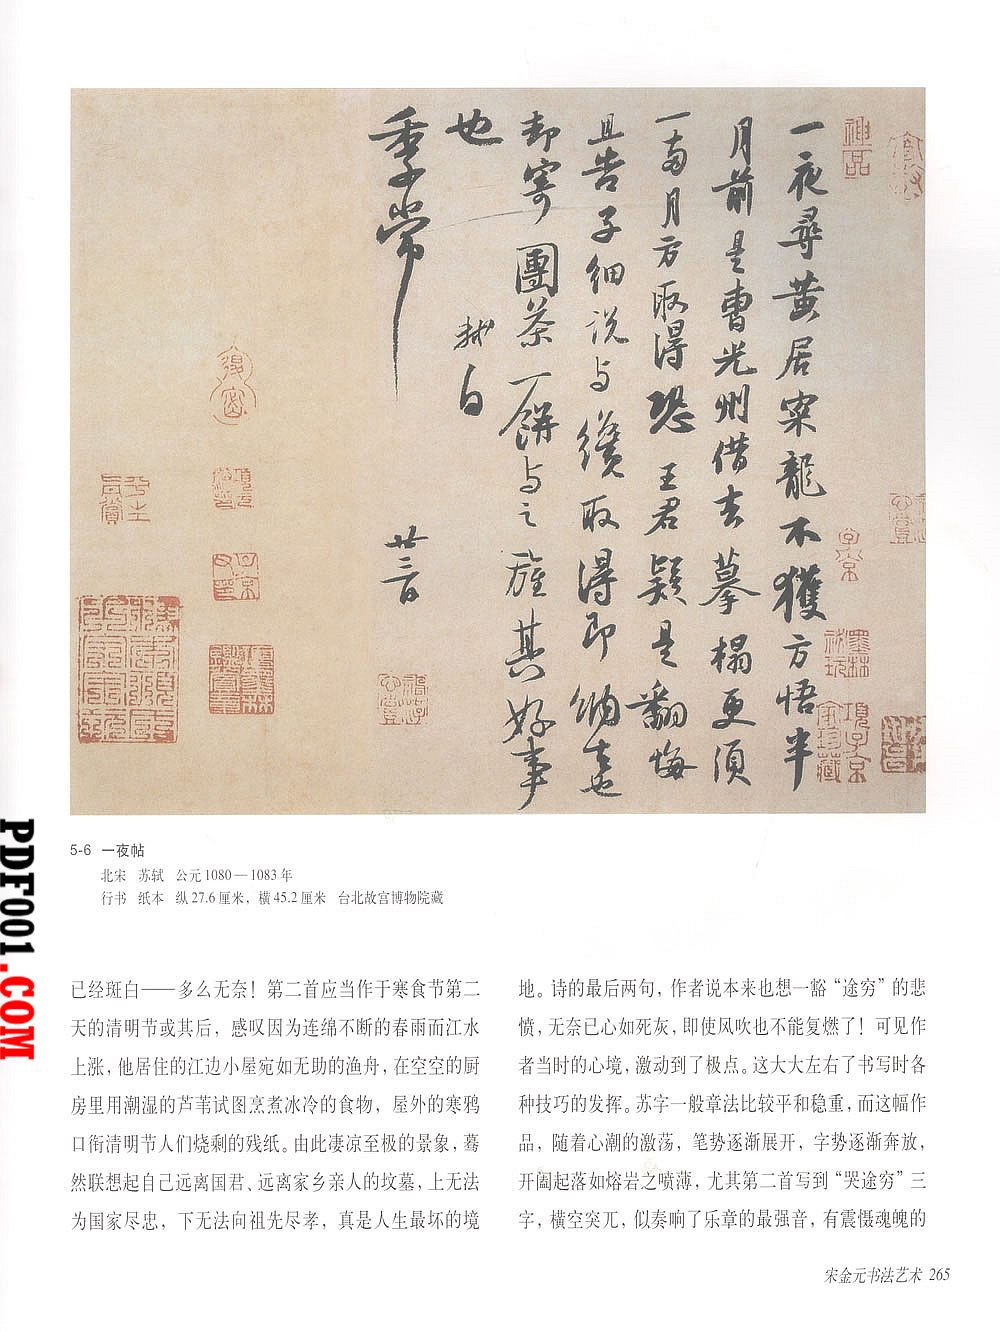 一夜尋黃居寀龍不獲方悟半
月前是曹光州借去摹榻更須
一兩月方取得恐王君疑是翻悔
且告子細說與纔取得即納去也
却寄團茶一餅與之旌其好事
也
軾白
季常
廿三日
5-6 一夜帖
北宋 苏轼 公元1080—1083年
行书 纸本 纵27.6厘米，横45.2厘米 台北故宫博物院藏
已经斑白——多么无奈！第二首应当作于寒食节第二
天的清明节或其后，感叹因为连绵不断的春雨而江水
上涨，他居住的江边小屋宛如无助的渔舟，在空空的厨
房里用潮湿的芦苇试图烹煮冰冷的食物，屋外的寒鸦
口衔清明节人们烧剩的残纸。由此凄凉至极的景象，蓦
然联想起自己远离国君、远离家乡亲人的坟墓，上无法
为国家尽忠，下无法向祖先尽孝，真是人生最坏的境
地。诗的最后两句，作者说本来也想一豁“途穷”的悲
愤，无奈已心如死灰，即使风吹也不能复燃了！可见作
者当时的心境，激动到了极点。这大大左右了书写时各
种技巧的发挥。苏字一般章法比较平和稳重，而这幅作
品，随着心潮的激荡，笔势逐渐展开，字势逐渐奔放，
开阖起落如熔岩之喷薄，尤其第二首写到“哭途穷”三
字，横空突兀，似奏响了乐章的最强音，有震慑魂魄的
宋金元书法艺术 265
PDF001.COM